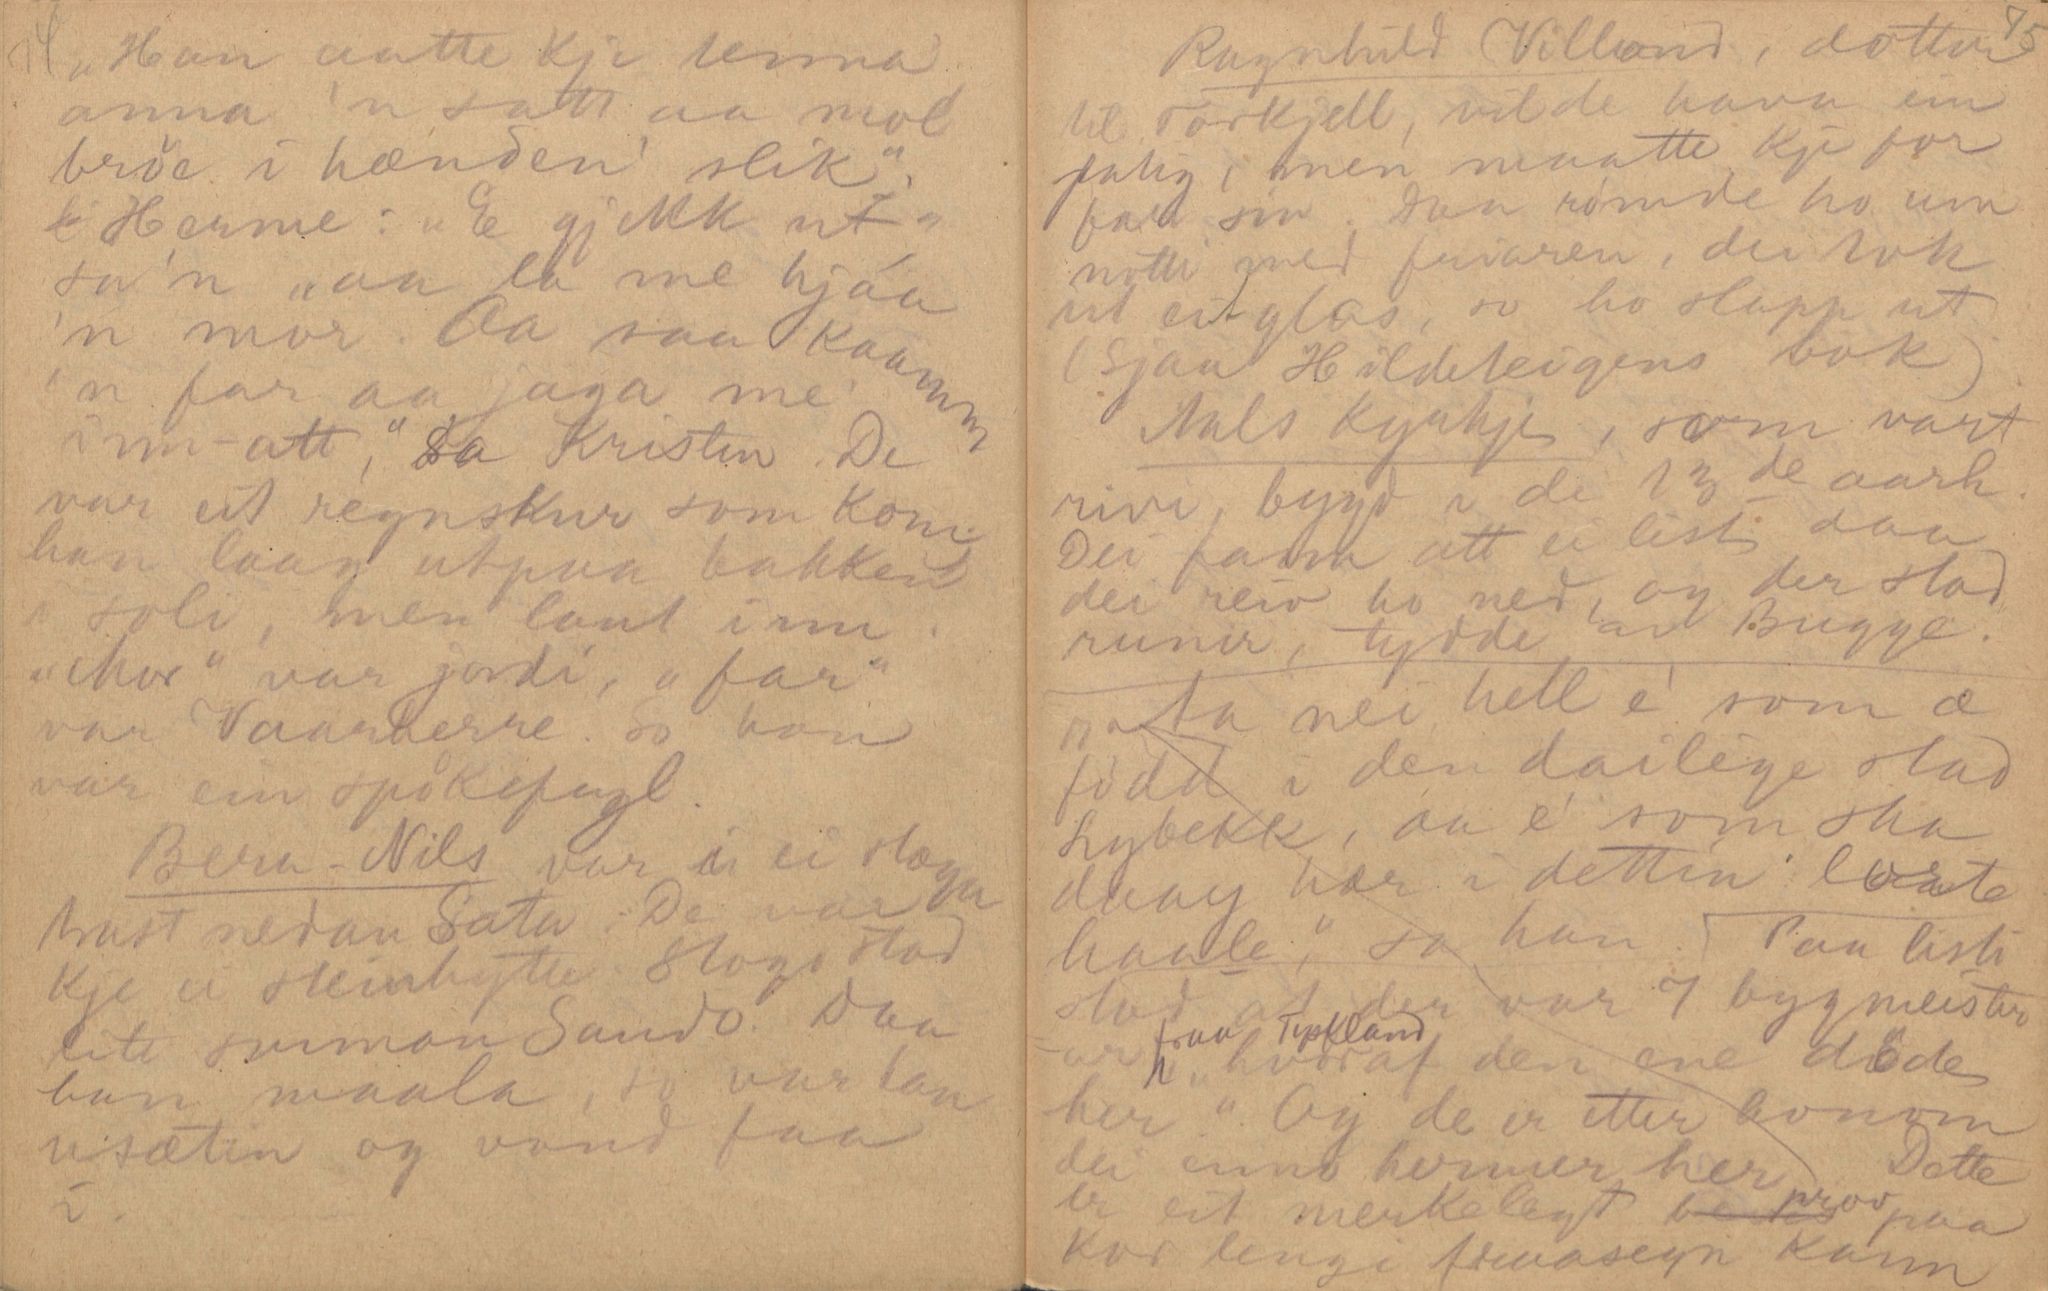 74
„Han aatte kje tenna
anna 'n satt aa mol
bröe i hænden slik".
Herme: „E gjekk ut"
sa'n „aa la me hjaa
'n mor. Aa saa kaamm
'n far aa jaga me
inn-att," sa Kristen. De
var eit regnskur som kom,
han laag utpaa bakken
i soli, men laut inn.
„Mor" var jordi, „far"
var Vaarherre. So han
var ein spökefugl.
Bera-Nils var i ei stoga
kast nedan Sata. De var
kje ei steinhytte. Stogo stod
lite sunnan Sando. Daa
han maala, so var han
usætin og vond faa
i.
75
Ragnhild Villand, dotter
til Torkjell, vilde hava ein
fatig, men maatte kje for
far sin. Daa römde ho um
notti med friaren, dei tok
ut eit glas, so ho slapp ut
(Sjaa Hildeteigens bok).
Aals kyrkje, som vart
rivi, bygd i de 13de aarh.
Dei fann att ei list daa
dei reiv ho ned, og der stod
runir, tydde av Bugge.
„Ta nei hell e' som æ
född i den dailige stad
Lybekk, aa e' som ska
daay hær i dettin' lorte
haale," sa han. Paa listi
stod at der var 7 bygmeister
ar fraa Tyskland „hvoraf den ene döde
her". Og de er etter honom
dei enno hermer her. Dette
er eit merkelegt prov paa
kor lengi fraasegn kann